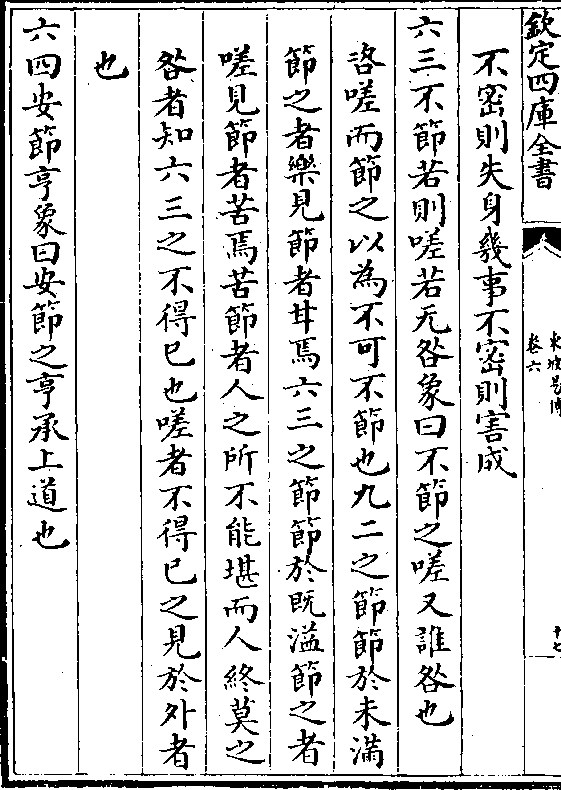 欽定四庫全書
東坡易傳
卷六
十七
不密則失身幾事不密則害成
六三不節若則嗟若无咎象曰不節之嗟又誰咎也
咨嗟而節之以為不可不節也九二之節節於未滿
節之者樂見節者甘焉六三之節節於既溢節之者
嗟見節者苦焉苦節者人之所不能堪而人終莫之
咎者知六三之不得已也嗟者不得已之見於外者
也
六四安節亨象曰安節之亨承上道也